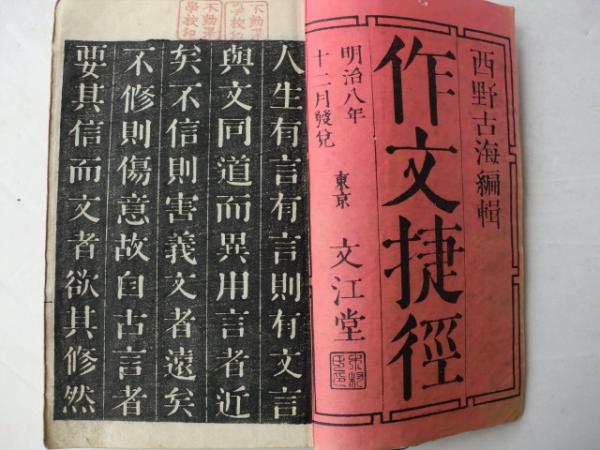 西野古海編輯
作文捷徑
明治八年
十二月發兌
東京
文江堂
人生有言有言則有文言
與文同道而異用言者近
矣不信則害義文者遠矣
不修則傷意故自古言者
要其信而文者欲其修然